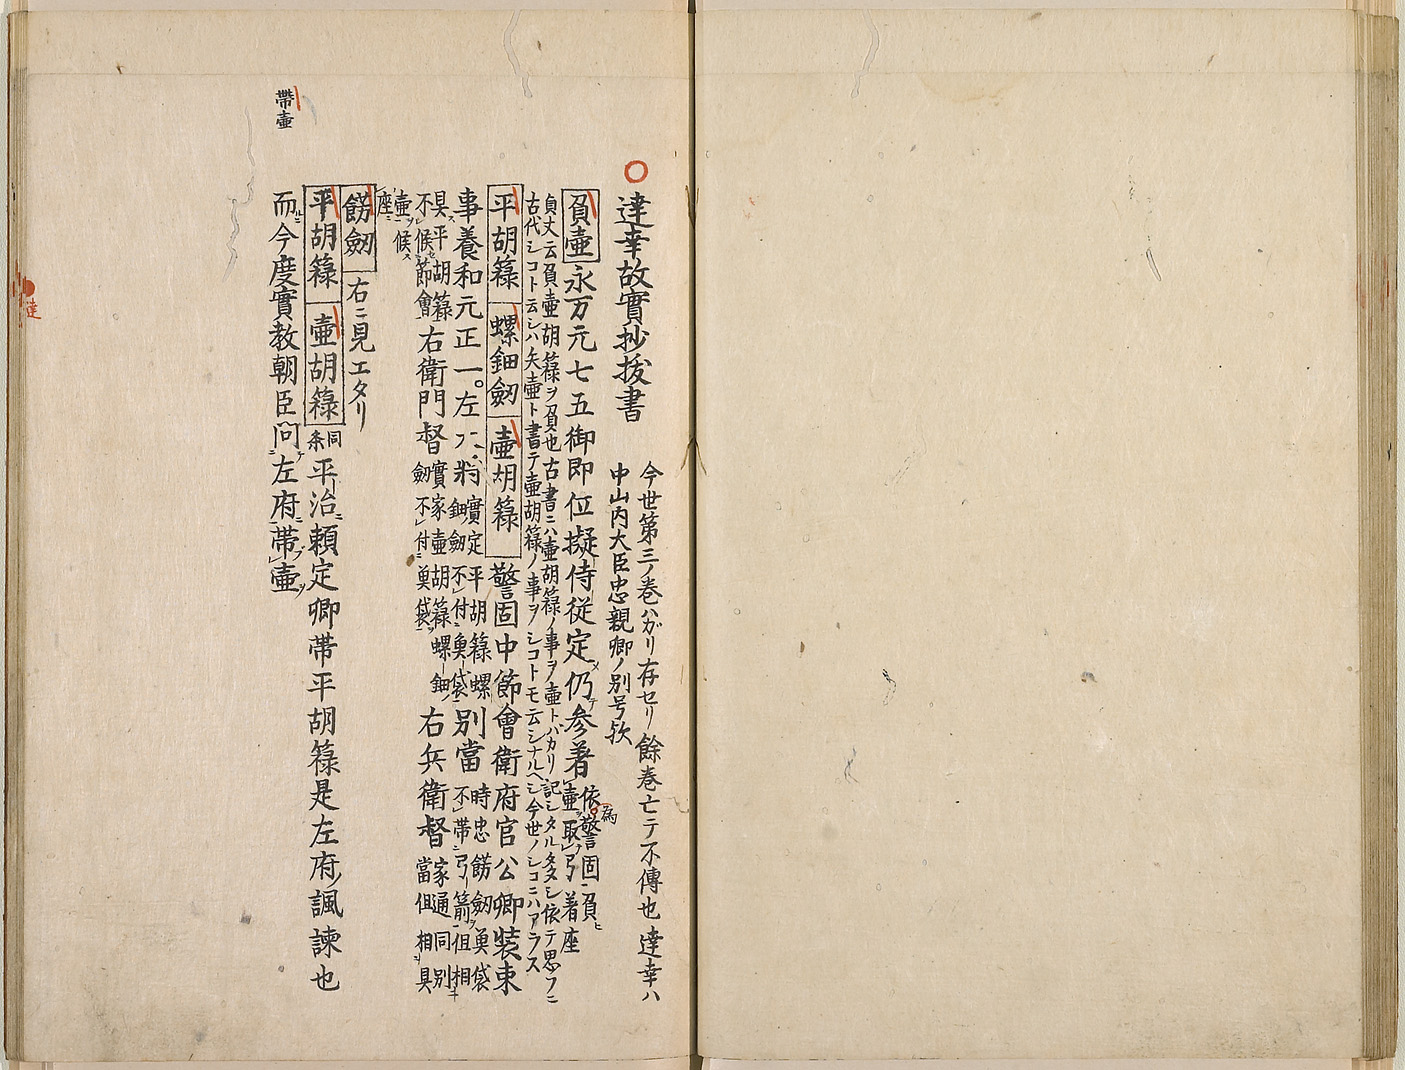 達幸故實抄抜書
今世第三ノ巻バガリ存セリ餘巻亡テ不傳也達幸ハ
中山内大臣忠親卿ノ別号欤
負壷 永万元七五御即位擬侍従定メ仍テ参着 依為警固負ヒ
壷取弓着座
貞丈云負壷胡籙ヲ負也古書ニハ壷胡籙ノ事ヲ壷トバカリ記シタル多シ依テ思フニ
古代シコト云シハ矢壷ト書テ壷胡籙ノ事ヲシコトモ云シナルヘシ今世ノシコニハアラス
平胡籙 螺鈿劔 壷胡籙 警固中節會衛府官公卿装束
事養和元正一。左大将 實定平胡籙螺
鈿劔不付魚袋 別當 時忠餝劔魚袋
不帯弓箭但相
具平胡籙
不候節會 右衛門督 實家壷胡籙螺鈿
劔不付魚袋 右兵衛督 家通同別
當但相具
壷候
座
餝劔 右ニ見エタリ
平胡籙 壷胡籙 同条 平治頼定卿帯平胡籙是左府諷諌也
而今度實教朝臣問左府帯壷
帶壷
達